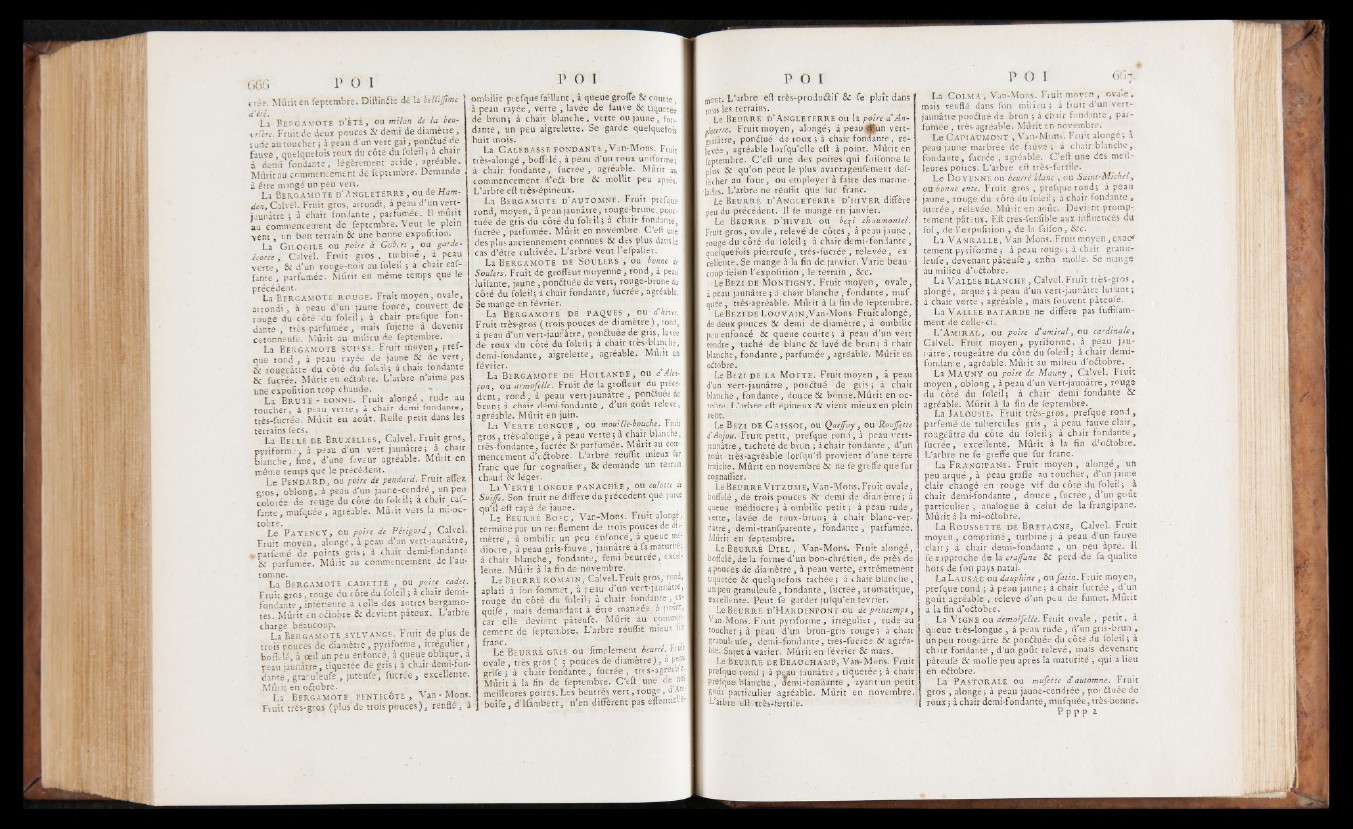 666 P O I
crée. Mûrit en septembre. Distincte de la bellissime
d'été.
La BERGAMOTE D'ÉTÉ, ou milan de la beu-
vrière. Fruit de deux pouces & demi de diamètre,
rude au toucher; à peau d'un vert gai, ponctué de
fauve, quelquefois roux du côté du soleil; à chair
à demi fondante, légèrement acide, agréable.
Mûrit au commencement de septembre. Demande
à être mangé un peu vert.
La BERGAMOTE D'ANGLETERRE, ou de Ham-
den, Calvel. Fruit gros, arrondi, à peau d'un vert-
jaunâtre; à chair fondante, parfumée. Il mûrit
au commencement de septembre. Veut le plein
vent, un bon terrain & une bonne exposition.
La GILOGILE ou poire à Gobert, ou garde-
écorce, Calvel. Fruit gros, turbiné, à peau
verte, & d'un rouge-noir au soleil; à chair cas-
sante, parfumée. Mûrit en même temps que le
précédent.
La BERGAMOTE ROUGE. Fruit moyen, ovale,
arrondi, à peau d'un jaune foncé, couvert de
rouge du côté du soleil; à chair presque fon-
dante, très-parfumée, mais sujette à devenir
cotonneuse. Mûrit au milieu de septembre.
La BERGAMOTE SUISSE. Fruit moyen, pres-
que rond, à peau rayée de jaune & de vert,
& rougeâtre du côté du soleil; à chair fondante
& sucrée. Mûrit en octobre. L'arbre n'aime pas
une exposition trop chaude.
La BRUTE-BONNE. Fruit alongé, rude au
toucher, à peau verte, à chair demi-fondante,
très-sucrée. Mûrit en août. Reste petit dans les
terrains secs.
La BELLE DE BRUXELLES, Calvel. Fruit gros,
pyriforme, à peau d'un vert jaunâtre; à chair
blanche, fine, d'une saveur agréable. Mûrit en
même temps que le précédent.
Le PENDARD, ou poire de pendard. Fruit assez
gros, oblong, à peau d'un jaune-cendré, un peu
colorée de rouge du côté du soleil; à chair cas-
sante, musquée, agréable. Mûrit vers la mi-oc-
tobre.
Le PAYENCY, ou poire de Périgord, Calvel.
Fruit moyen, alongé, à peau d'un vert-jaunâtre,
parsemé de points gris; à chair demi-fondante
& parfumée. Mûrit au commencement de l'au-
tomne.
La BERGAMOTE CADETTE, ou poire cadet.
Fruit gros, rouge du côté du soleil; à chair demi-
fondante, inférieure à celle des autres bergamo-
tes. Mûrit en octobre & devient pâteux. L'arbre
charge beaucoup.
La BERGAMOTE SYLVANGE. Fruit de plus de
trois pouces de diamètre, pyriforme, irrégulier,
bosselé, à œil un peu enfoncé, à queue oblique, à
peau jaunâtre, tiquetée de gris; à chair demi-fon-
dante, granuleuse, juteuse, sucrée, excellente.
Mûrit en octobre.
La BERGAMOTE PENTECÔTE, Van-Mons.
Fruit très-gros (plus de trois pouces), renflé, à
P O I
ombilic presque saillant, à queue grosse & courte,
à peau rayée, verte, lavée de fauve & tiquetée
de brun; à chair blanche, verte ou jaune, fon-
dante, un peu aigrelette. Se garde quelquefois
huit mois.
La CALEBASSE FONDANTE, Van-Mons. Fruit
très-alongé, bosselé, à peau d'un roux uniforme;
à chair fondante, sucrée, agréable. Mûrit au
commencement d'octobre & mollit peu après.
L'arbre est très-épineux.
La BERGAMOTE D'AUTOMNE. Fruit presque
rond, moyen, à peau jaunâtre, rouge-brune, ponc-
tuée de gris du côté du soleil; à chair fondante,
sucrée, parfumée. Mûrit en novembre. C'est une
des plus anciennement connues & des plus dans le
cas d'être cultivée. L'arbre veut l'espalier.
La BERGAMOTE DE SOULERS, ou bonne de
Soulers. Fruit de grosseur moyenne, rond, à peau
luisante, jaune, ponctuée de vert, rouge-brune du
côté du soleil; à chair fondante, sucrée, agréable.
Se mange en février.
La BERGAMOTE DE PAQUES, ou d'hiver.
Fruit très-gros (trois pouces de diamètre), rond,
à peau d'un vert-jaunâtre, ponctuée de gris, lavée
de roux du côté du soleil; à chair très-blanche,
demi-fondante, aigrelette, agréable. Mûrit en
février.
La BERGAMOTE DE HOLLANDE, ou d'Alen-
çon, ou amoselle. Fruit de la grosseur du précé-
dent, rond, à peau vert-jaunâtre, ponctuée de
brun; à chair demi-fondante, d'un goût relevé,
agréable. Mûrit en juin.
La VERTE LONGUE, ou mouille-bouche. Fruit
gros, très-alongé, à peau verte; à chair blanche,
très-fondante, sucrée & parfumée. Mûrit au com-
mencement d'octobre. L'arbre réussit mieux sur
franc que sur cognassier, & demande un terrain
chaud & léger.
La VERTE LONGUE PANACHÉE, ou culotte de
Suisse. Son fruit ne diffère du précédent que parce
qu'il est rayé de jaune.
Le BEURRÉ BOSC, Van-Mons. Fruit alongé,
terminé par un renflement de trois pouces de dia-
mètre, à ombilic un peu enfoncé, à queue mé-
diocre, à peau gris-fauve, jaunâtre à sa maturité;
à chair blanche, fondante, semi beurrée, excel-
lente. Mûrit à la fin de novembre.
Le BEURRÉ ROMAIN, Calvel. Fruit gros, rond,
aplati à son sommet, à peau d'un vert-jaunâtre,
rouge du côté du soleil; à chair fondante, ex-
quise, mais demandant à être mangée à point,
car elle devient pâteuse. Mûrit au commen-
cement de septembre. L'arbre réussit mieux sur
franc.
Le BEURRÉ GRIS ou simplement beurré. Fruit
ovale, très gros (3 pouces de diamètre), à peau
grise; à chair fondante, sucrée, très-agréable.
Mûrit à la fin de septembre. C'est une de nos
meilleures poires. Les beurrés vert, rouge, d'Am-
boise, d'Isambert, n'en diffèrent pas essentielle-
P O I
ment. L'arbre est très-productif & se plaît dans
tous les terrains.
Le BEURRÉ D'ANGLETERRE ou la poire d'An-
gleterre. Fruit moyen, alongé; à peau d'un vert-
grisâtre, ponctué de roux; à chair fondante, re-
levée, agréable lorsqu'elle est à point. Mûrit en
septembre. C'est une des poires qui foisonne le
plus & qu'on peut le plus avantageusement des-
sécher au four, ou employer à faire des marme-
lades. L'arbre ne réussit que sur franc.
Le BEURRÉ D'ANGLETERRE D'HIVER diffère
peu du précédent. Il se mange en janvier.
Le BEURRÉ D'HIVER ou bezi chaumontel.
Fruit gros, ovale, relevé de côtes, à peau jaune,
rouge du côté du soleil; à chair demi-fondante,
quelquefois pierreuse, très-sucrée, relevée, ex-
cellente. Se mange à la fin de janvier. Varie beau-
coup selon l'exposition, le terrain, &c.
Le BEZI DE MONTIGNY. Fruit moyen, ovale,
à peau jaunâtre; à chair blanche, fondante, mus-
quée, très-agréable. Mûrit à la fin de septembre.
Le BEZI DE LOUVAIN, Van-Mons. Fruit alongé,
de deux pouces & demi de diamètre, à ombilic
peu enfoncé & queue courte; à peau d'un vert
tendre, taché de blanc & lavé de brun; à chair
blanche, fondante, parfumée, agréable. Mûrit en
octobre.
Le BEZI DE LA MOTTE. Fruit moyen, à peau
d'un vert-jaunâtre, ponctué de gris; à chair
blanche, fondante, douce & bonne. Mûrit en oc-
tobre. L'arbre est épineux & vient mieux en plein
vent.
Le BEZI DE CAISSOI, ou Quessoy, ou Roussette
d'Anjou. Fruit petit, presque rond, à peau vert-
jaunâtre, tacheté de brun; à chair fondante, d'un
goût très-agréable lorsqu'il provient d'une terre
fraîche. Mûrit en novembre & ne se greffe que sur
cognassier.
Le BEURRÉ VITZUME, Van-Mons. Fruit ovale,
bosselé, de trois pouces & demi de diamètre; à
queue médiocre; à ombilic petit; à peau rude,
verte, lavée de roux-brun; à chair blanc-ver-
dâtre, demi-transparente, fondante, parfumée.
Mûrit en septembre.
Le BEURRÉ DIEL, Van-Mons. Fruit alongé,
bosselé, de la forme d'un bon-chrétien, de près de
4 pouces de diamètre, à peau verte, extrêmement
tiquetée & quelquefois tachée; à chair blanche,
un peu granuleuse, fondante, sucrée, aromatique,
excellente. Peut se garder jusqu'en février.
Le BEURRÉ D'HARDENPONT ou de printemps,
Van-Mons. Fruit pyriforme, irrégulier, rude au
toucher; à peau d'un brun-gris rouge; à chair
granuleuse, demi-fondante, très-sucrée & agréa-
ble. Sujet à varier. Mûrit en février & mars.
Le BEURRÉ DE BEAUCHAMP, Van-Mons. Fruit
presque rond; à peau jaunâtre, tiquetée; à chair
presque blanche, demi-fondante, ayant un petit
goût particulier agréable. Mûrit en novembre.
L'arbre est très-fertile.
P O I 667
La COLMA, Van-Mons. Fruit moyen, ovale,
mais renflé dans son milieu; à fruit d'un vert-
jaunâtre ponctué de brun; à chair fondante, par-
fumée, très-agréable. Mûrit en novembre.
Le CAPIAUMONT, Van-Mons. Fruit alongé; à
peau jaune marbrée de fauve; à chair blanche,
fondante, sucrée, agréable. C'est une des meil-
leures poires. L'arbre est très-fertile.
Le DOYENNÉ ou beurré blanc, ou Saint-Michel,
ou bonne ente. Fruit gros, presque rond; à peau
jaune, rouge du côté du soleil; à chair fondante,
sucrée, relevée. Mûrit en août. Devient promp-
tement pâteux. Est très-sensible aux influences du
sol, de l'exposition, de la saison, &c.
La VANRALLE, Van-Mons. Fruit moyen, exac-
tement pyriforme; à peau rouge; à chair granu-
leuse, devenant pâteuse, enfin molle. Se mange
au milieu d'octobre.
La VALLÉE BLANCHE, Calvel. Fruit très-gros,
alongé, arqué; à peau d'un vert-jaunâtre luisant;
à chair verte, agréable, mais souvent pâteuse.
La VALLÉE BATARDE ne diffère pas suffisam-
ment de celle-ci.
L'AMIRAL, ou poire d'amiral, ou cardinale,
Calvel. Fruit moyen, pyriforme, à peau jau-
nâtre, rougeâtre du côté du soleil; à chair demi-
fondante, agréable. Mûrit au milieu d'octobre.
La MAUNY ou poire de Mauny, Calvel. Fruit
moyen, oblong, à peau d'un vert-jaunâtre, rouge
du côté du soleil; à chair demi fondante &
agréable. Mûrit à la fin de septembre.
La JALOUSIE. Fruit très-gros, presque rond,
parsemé de tubercules gris, à peau fauve clair,
rougeâtre du côté du soleil; à chair fondante,
sucrée, excellente. Mûrit à la fin d'octobre.
L'arbre ne se greffe que sur franc.
La FRANGIPANE. Fruit moyen, alongé, un
peu arqué, à peau grasse au toucher, d'un jaune
clair changé en rouge vif du côté du soleil; à
chair demi-fondante, douce, sucrée, d'un goût
particulier, analogue à celui de la frangipane.
Mûrit à la mi-octobre.
La ROUSSETTE DE BRETAGNE, Calvel. Fruit
moyen, comprimé, turbiné; à peau d'un fauve
clair; à chair demi-fondante, un peu âpre. Il
se rapproche de la crassane & perd de sa qualité
hors de son pays natal.
La LAUSAC ou dauphine, ou satin. Fruit moyen,
presque rond; à peau jaune; à chair sucrée, d'un
goût agréable, relevé d'un peu de fumet. Mûrit
à la fin d'octobre.
La VIGNE ou demoiselle. Fruit ovale, petit, à
queue très-longue, à peau rude, d'un gris-brun,
un peu rougeâtre & ponctuée du côté du soleil; à
chair fondante, d'un goût relevé, mais devenant
pâteuse & molle peu après la maturité, qui a lieu
en octobre.
La PASTORALE ou musette d'automne. Fruit
gros, alongé; à peau jaune-cendrée, ponctuée de
roux; à chair demi-fondante, musquée, très-bonne.
P p p p 2